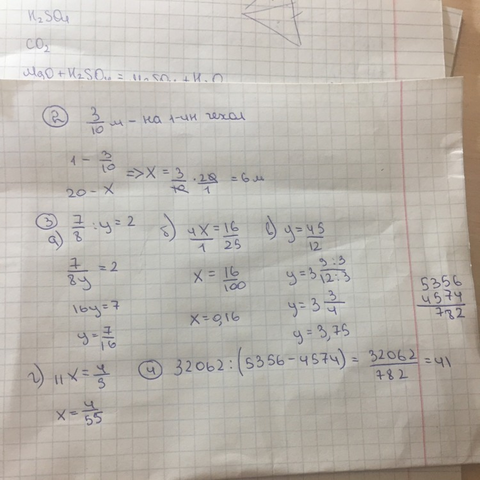 H₂SO₄
CO₂
MgO + H₂SO₄ =
② 3/10 м - на 1-ин чехол
1 - 3/10
20 - X
=> X = 3/10 · 20/1 = 6 м
③ а) 7/8 : y = 2
7/8y = 2
16y = 7
y = 7/16
б) 4X/1 = 16/25
X = 16/100
X = 0,16
в) y = 45/12
y = 3 9:3/12:3
y = 3 3/4
y = 3,75
5356
4574
782
г) 11X = 4/5
X = 4/55
④ 32062 : (5356 - 4574) = 32062/782 = 41